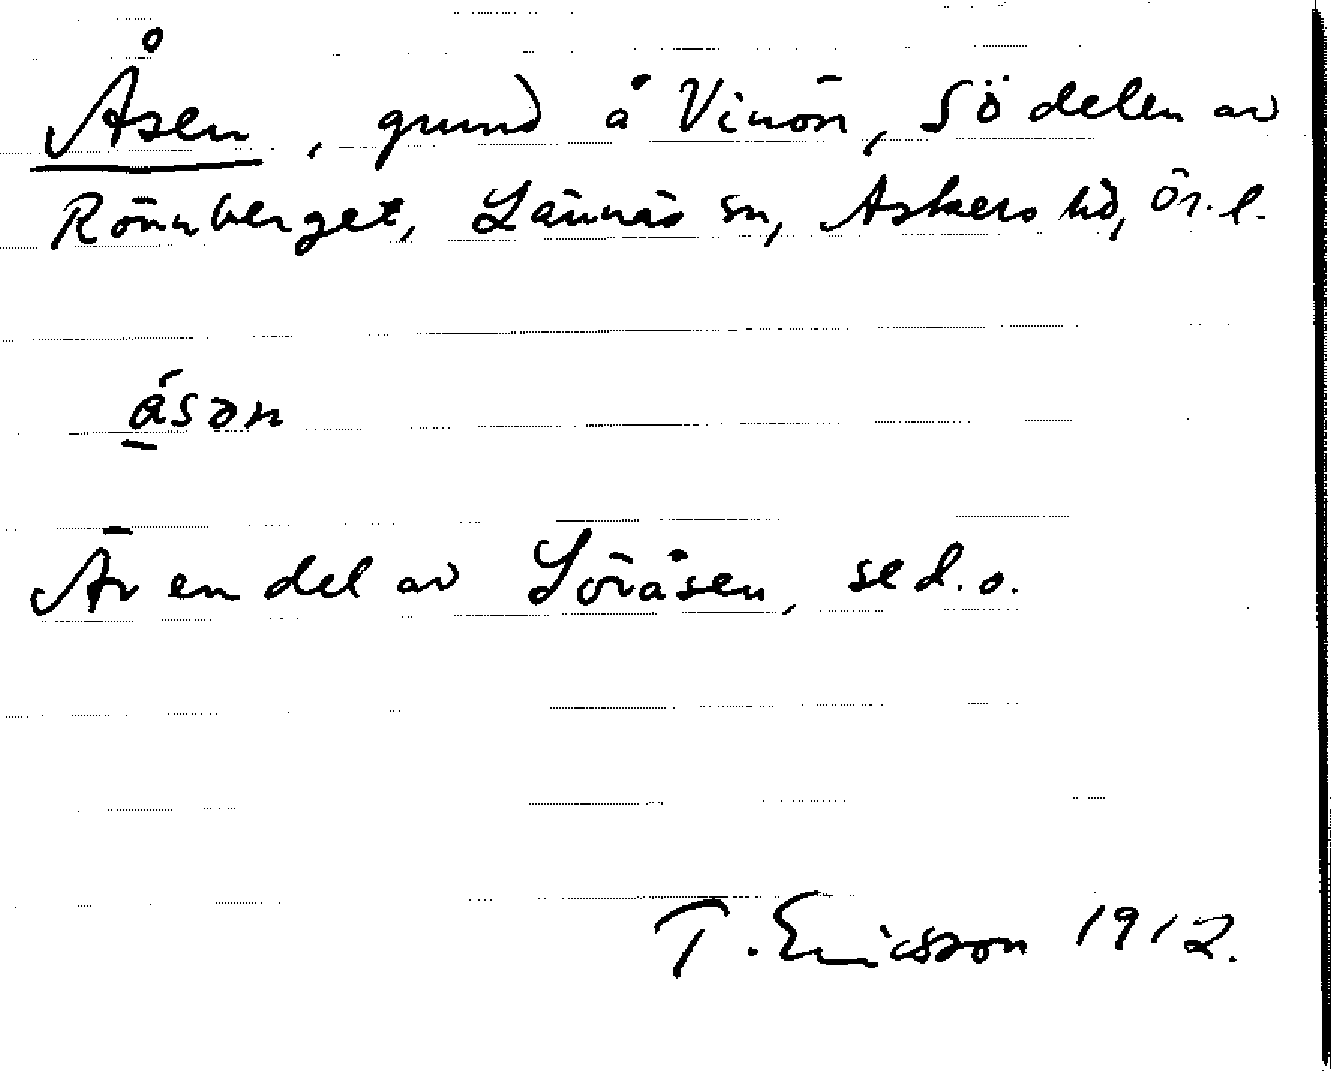 Åsen, grund å Vinön, Sö delen av
Rönnberget, Lännäs sn, Askers hd, Ör. l.
åsən
Är en del av Löråsen, se d. o.
T. Ericsson 1912.